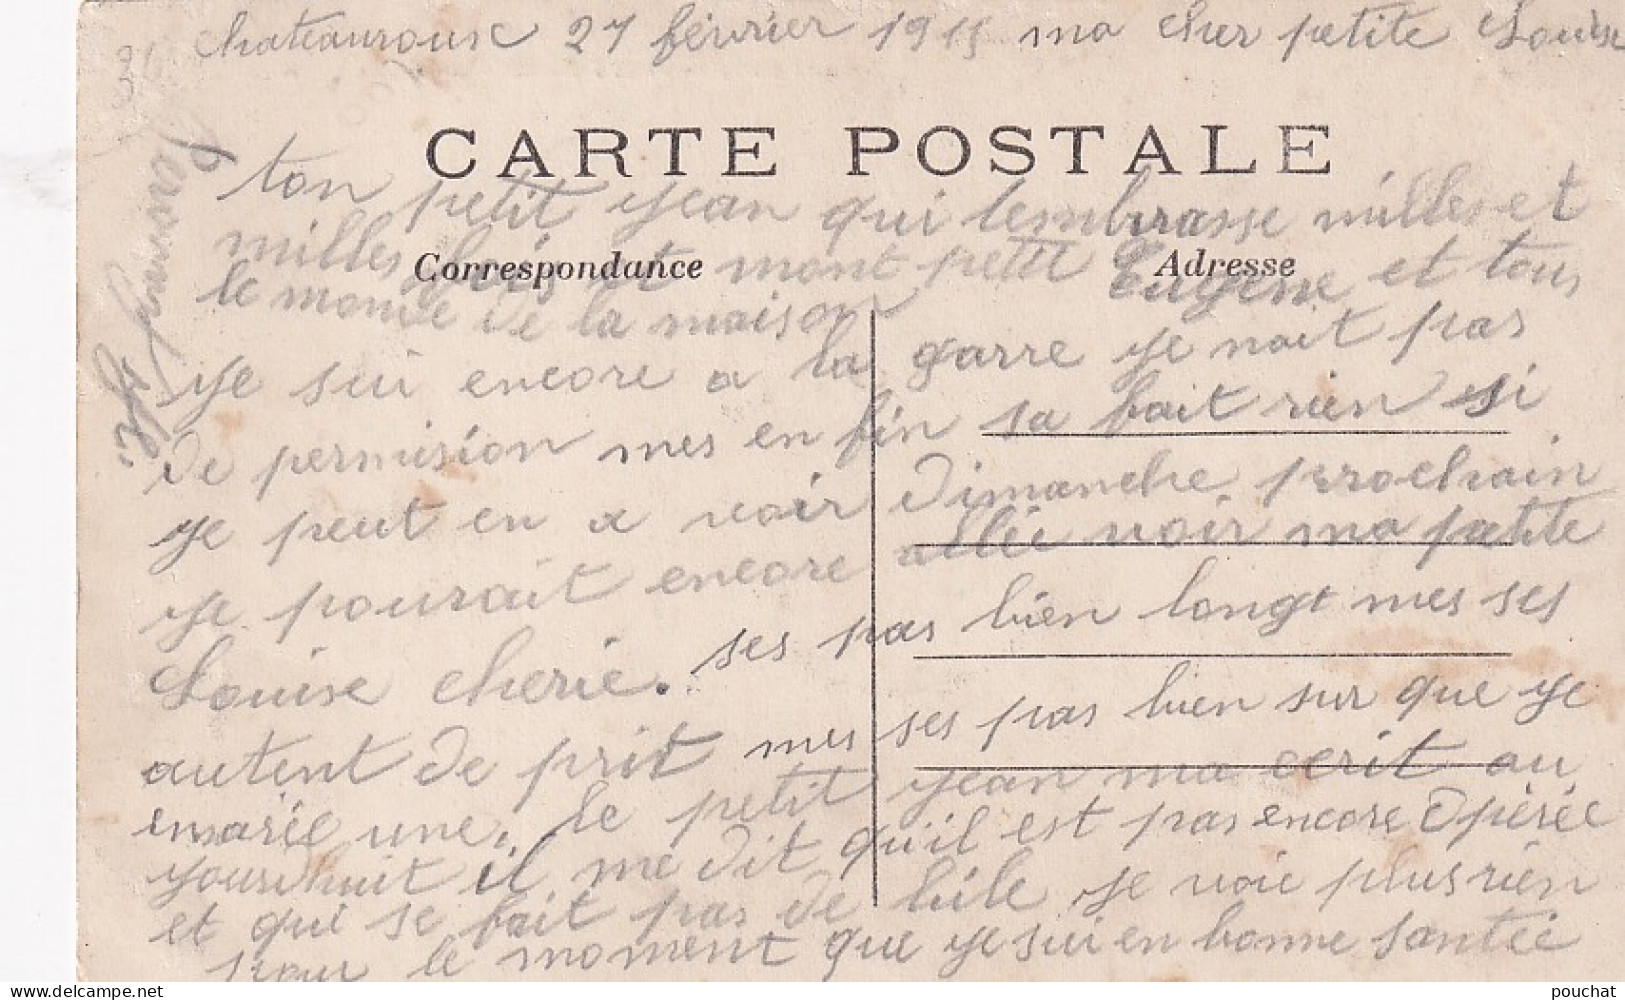 Chateauroux 27 février 1915 ma cher petite Louise
CARTE POSTALE
ton petit jean qui tembrasse milles et
milles fois et mont petit Eugene et tous
Correspondance
Adresse
le monde de la maison
je sui encore a la garre je nait pas
de permision mes en fin sa fait rien si
je peut en a voir dimanche prochain
je pourait encore allée voir ma petite
Louise cherie. ses pas bien longt mes ses
autent de prit mes ses pas bien sur que je
en une. le petit jean ma ecrit au
yourdhuit il me dit quil est pas encore opérée
et qui se fait pas de bile je voie plus rien
pour le moment que je sui en bonne santée
pouchat